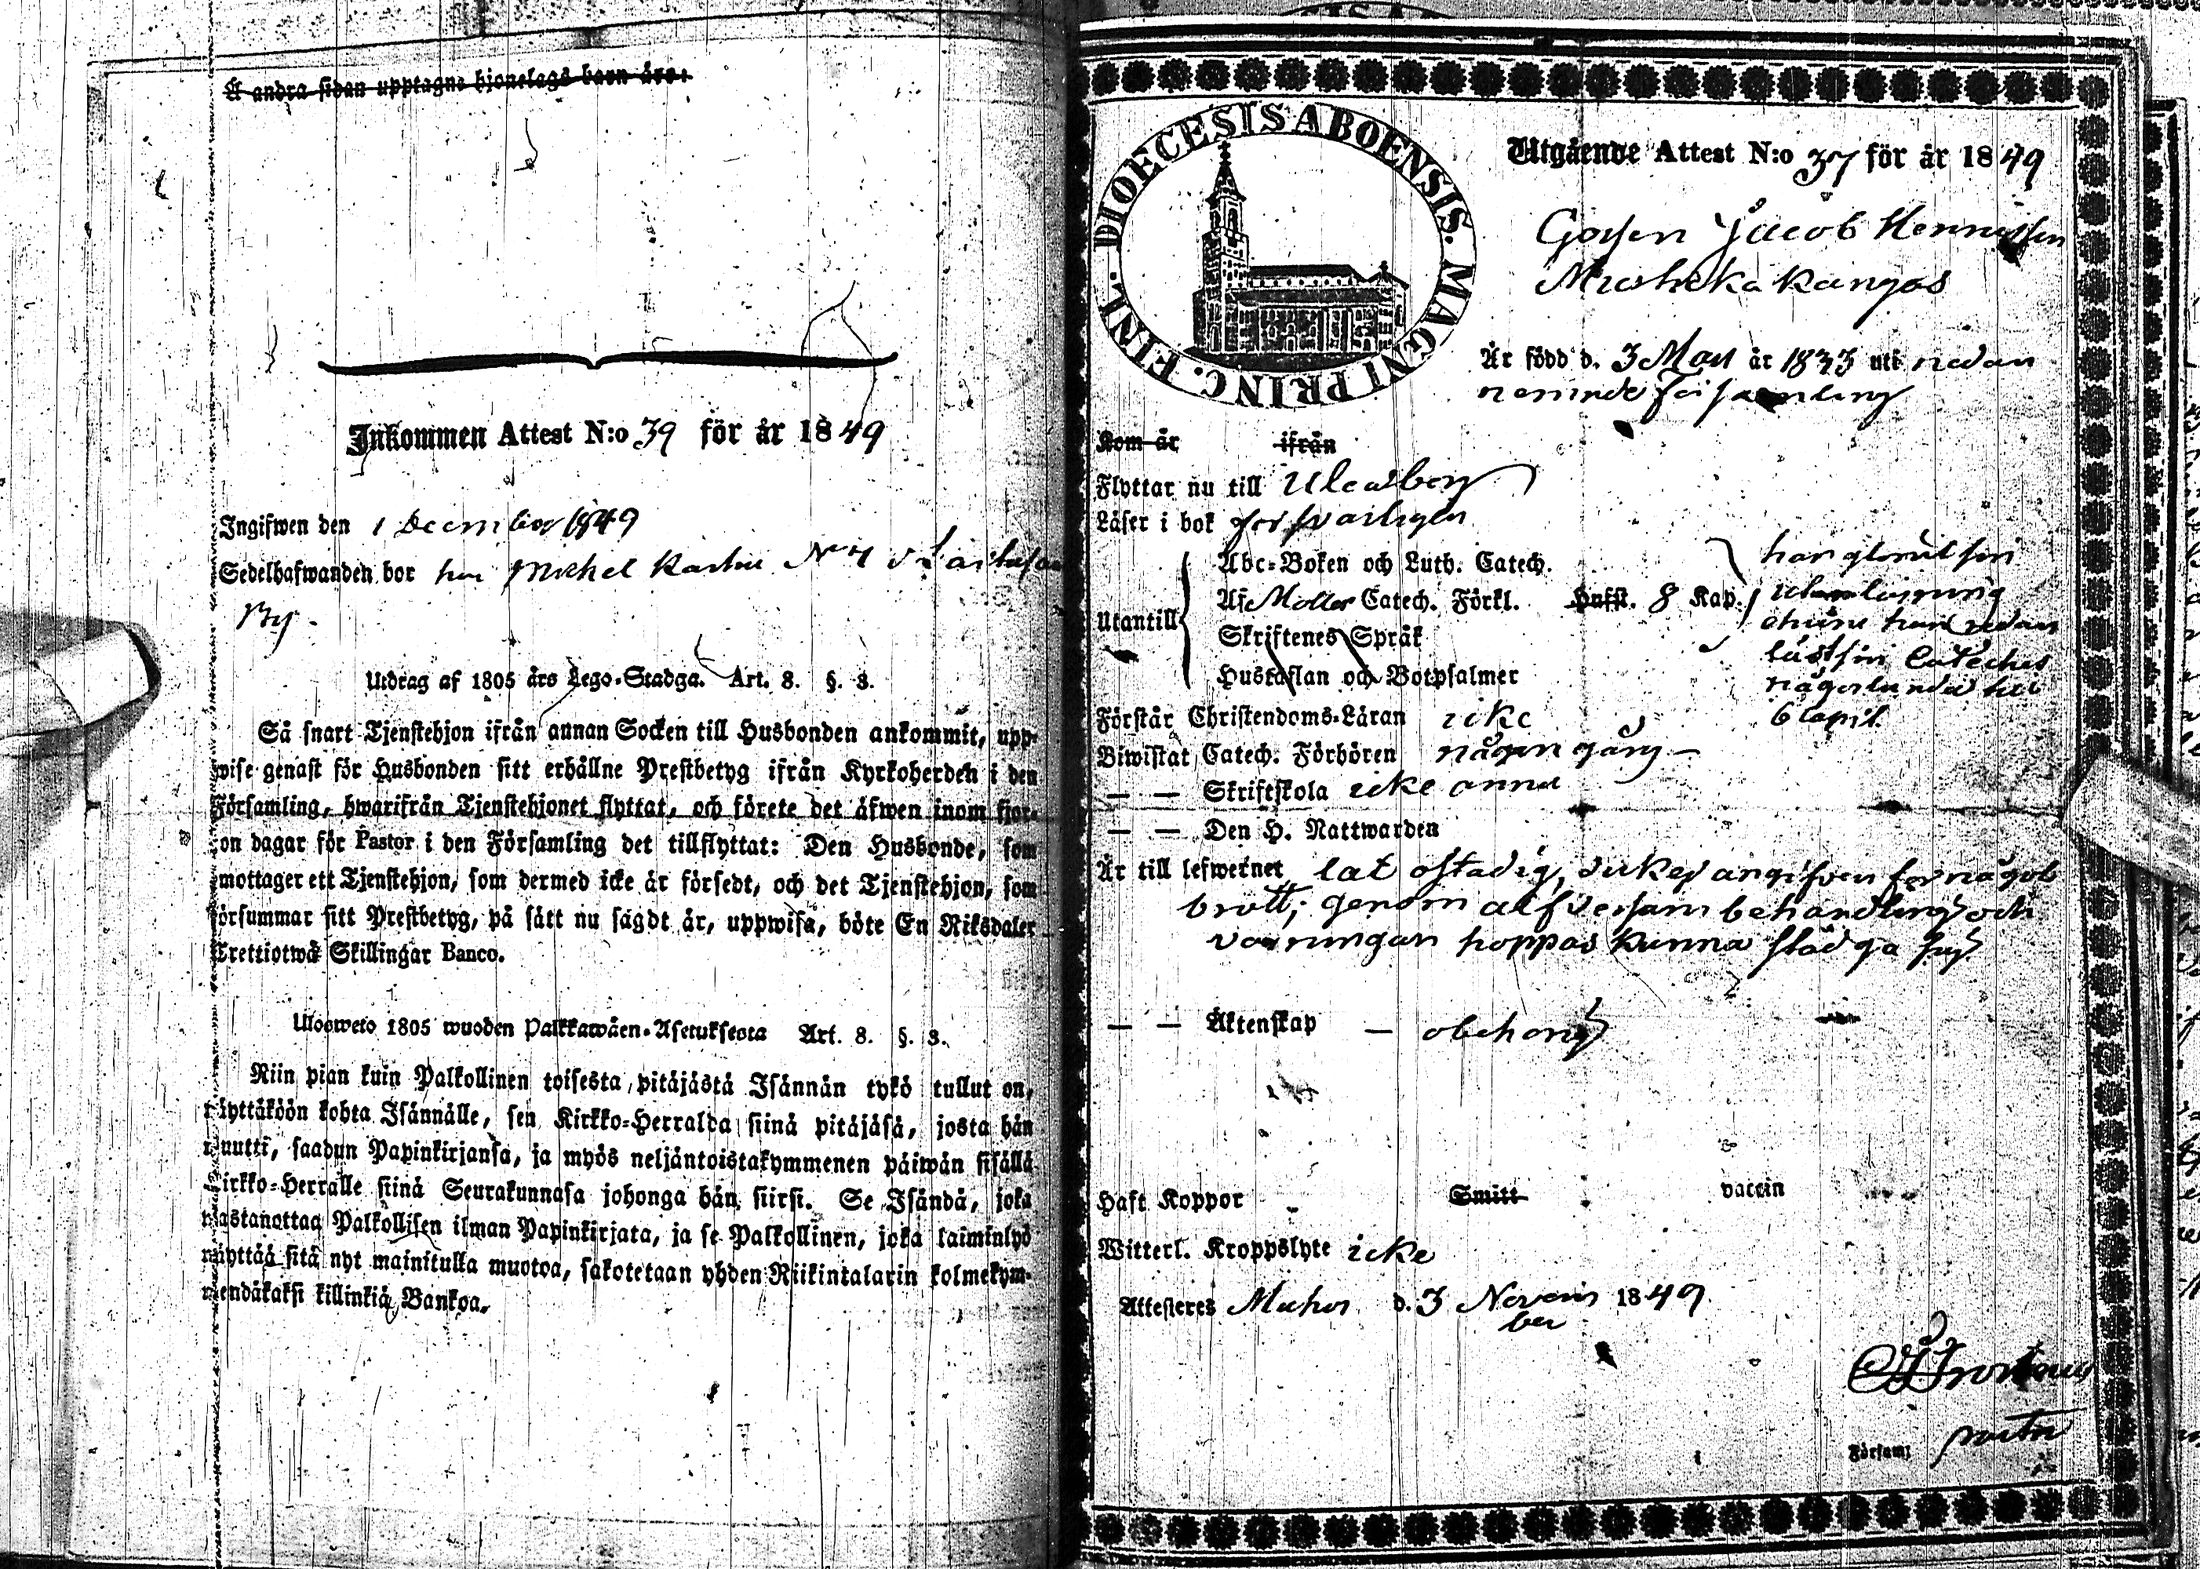 Å andra sidan upptagne hjonelags barn äro:
Inkommen Attest N:o 39 för år 1849
Ingifwen den 1 December 1849
Sedelhafwanden bor hos Michel N:o
By.
Utdrag af 1805 års Lego-Stadga. Art. 8. §. 3.
Så snart Tjenstehjon ifrån annan Socken till Husbonden ankommit, upp-
wise genast för Husbonden sitt erhållne Prestbetyg ifrån Kyrkoherden i den
Församling, hwarifrån Tjenstehjonet flyttat, och förete det äfwen inom fjor-
ton dagar för Pastor i den Församling det tillflyttat: Den Husbonde, som
mottager ett Tjenstehjon, som dermed icke är försedt, och det Tjenstehjon, som
försummar sitt Prestbetyg, på sätt nu sagdt är, uppwisa, böte En Riksdaler
Trettiotwå Skillingar Banco.
Ulosweto 1805 wuoden Palkkawäen-Asetuksesta Art. 8. §. 3.
Niin pian kuin Palkollinen toisesta pitäjästä Isännän tykö tullut on,
näyttäköön kohta Isännälle, sen Kirkko-Herralda siinä pitäjäsä, josta hän
muutti, saadun Papinkirjansa, ja myös neljäntoistakymmenen päiwän sisällä
Kirkko-Herralle siinä Seurakunnasa johonga hän siirsi. Se Isändä, joka
wastanottaa Palkollisen ilman Papinkirjata, ja se Palkollinen, joka laiminlyö
näyttää sitä nyt mainitulla muotoa, sakotetaan yhden Riikintalarin kolmekym-
mendäkaksi killinkiä Bankoa.
DIOECESIS ABOENSIS. MAGNI PRINC. FINL.
Utgående Attest N:o 37 för år 1849
Gossen Jacob
Muhos
Är född d. 3 år 1833 uti nedan
nämnde församling
Kom år ifrån
Flyttar nu till Uleåborg
Läser i bok försvarligen
Utantill
Abc-Boken och Luth. Catech.
Af Catech. Förkl. Hufst. 8 Kap.
Skriftenes Språk
Hustaflan och Botpsalmer
har glömt sin
utanläsning
ehuru han redan
läst sin Cateches
någorlunda till
6 capit.
Förstår Christendoms-Läran icke
Biwistat Catech. Förhören någon gång —
— — Skriftskola icke ännu
— — Den H. Nattwarden
Är till lefwernet lat ostadig, angifven för något
brott; genom alfversam behandling och
varningar hoppas kunna städga sig
— — Äktenskap — obehörig
Haft Koppor Smitt vaccin
Witterl. Kroppslyte icke
Attesteras Muhos d. 3 Novem
ber 1849
Församl